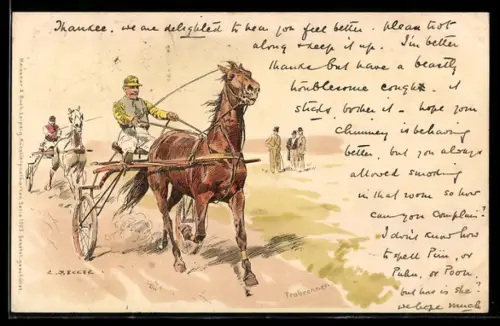 Thankee, we are delighted to hear you feel better. please trot
along & keep it up. I'm better
thanks but have a beastly
troublesome cough. it
sticks, bother it - hope your
chimney is behaving
better, but you always
allowed smoking
in that room so how
can you complain?
I don't know how
to spell Piin, or
Puhn, or Poon,
but how is she -
we hope much
C. BECKER
Trabrennen.
Meissner & Buch, Leipzig. Künstlerpostkarten Serie